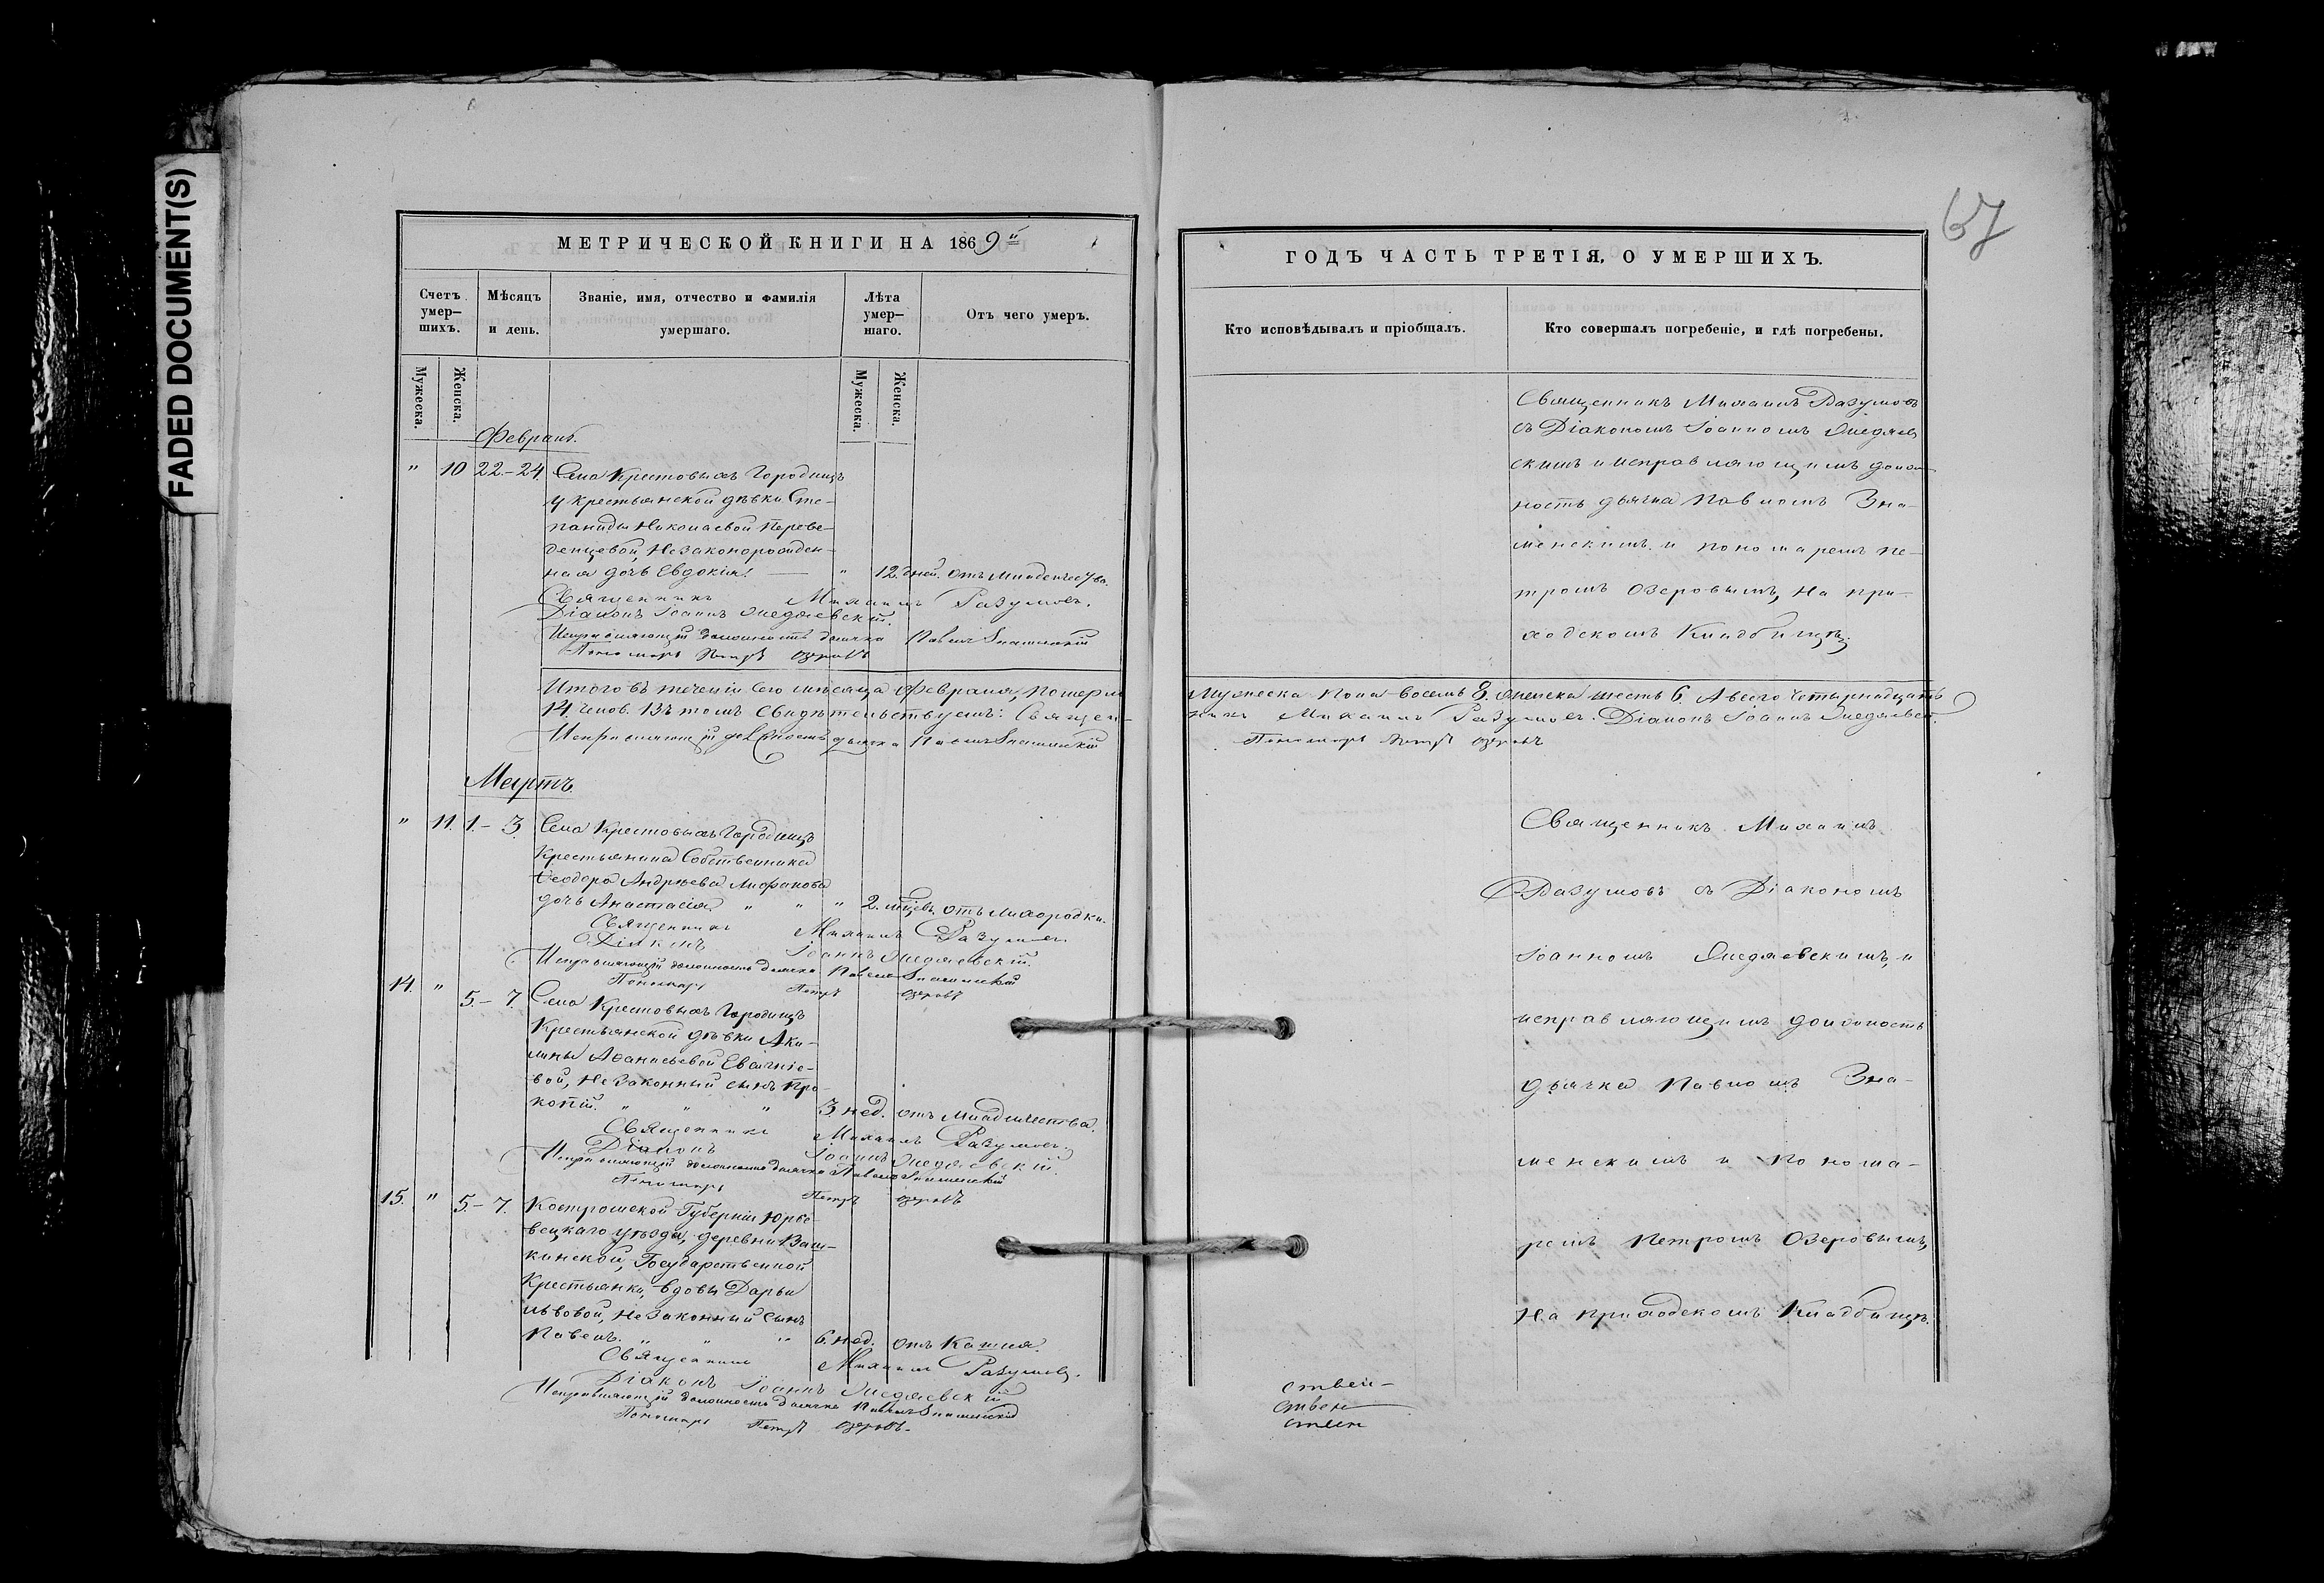 FADED DOCUMENT(S)
67
МЕТРИЧЕСКОЙ КНИГИ НА 1869й
Счетъ умер-шихъ.
Мѣсяцъ и день.
Званіе, имя, отчество и фамилія умершаго.
Лѣта умер-шаго.
Отъ чего умеръ.
Мужеска.
Женска.
Мужеска.
Женска.
Февраль.
" 10 22.-24. Села Крестовыхъ Городищъ
у крестьянской дѣвки Сте-
паниды Николаевой Переве-
денцевой, незаконорожден-
ная дочь Евдокія. — " 12. дней. отъ младенчества.
Священникъ Михаилъ Разумовъ.
Діаконъ Іоаннъ
Исправляющій должность дьячка Павелъ Знаменскій
Пономарь Петръ Озеровъ
Итого въ теченіи сего мѣсяца февраля, померло
14. челов. Въ томъ свидѣтельствуемъ: Священ-
Исправляющій должность дьячка Павелъ Знаменскій
Мартъ.
" 11. 1.- 3. Села Крестовыхъ Городищъ
Крестьянина Собственника
Ѳеодора Андреева
дочь Анастасія. " " " 2. мѣсев. отъ лихорадки.
Священникъ Михаилъ Разумовъ
Діаконъ Іоаннъ
Исправляющій должность дьячка Павелъ Знаменскій
Пономарь Петръ Озеровъ
14. " 5.- 7. Села Крестовыхъ Городищъ
Крестьянской дѣвки Аки-
лины Аѳанасьевой
вой, незаконный сынъ Про-
копій. " " " 3 нед. отъ младенчества.
Священникъ Михаилъ Разумовъ.
Діаконъ Іоаннъ
Исправляющій должность дьячка Павелъ Знаменскій
Пономарь Петръ Озеровъ
15. " 5.- 7. Костромской Губерніи Юрье-
вецкаго уѣзда, деревни
Государственной
Крестьянки, вдовы Дарьи
Львовой, незаконный сынъ
Павелъ. " " " 6. нед. отъ кашля.
Священникъ Михаилъ Разумовъ.
Діаконъ Іоаннъ
Исправляющій должность дьячка Павелъ Знаменскій
Пономарь Петръ Озеровъ.
ГОДЪ ЧАСТЬ ТРЕТІЯ, О УМЕРШИХЪ.
Кто исповѣдывалъ и пріобщалъ.
Кто совершалъ погребеніе, и гдѣ погребены.
Священникъ Михаилъ Разумовъ
съ Діакономъ Іоанномъ
скимъ и исправляющимъ долж-
ность дьячка Павломъ Зна-
менскимъ и пономаремъ Пе-
тромъ Озеровымъ, на при-
ходскомъ Кладбищѣ.
Мужеска пола восемь 8. женска шесть 6. А всего четырнадцать
никъ Михаилъ Разумовъ. Діаконъ Іоаннъ
Пономарь Петръ Озеровъ
Священникъ Михаилъ
Разумовъ съ Діакономъ
Іоанномъ и
исправляющимъ должность
дьячка Павломъ Зна-
менскимъ и Понома-
ремъ Петромъ Озеровымъ,
на приходскомъ Кладбищѣ.
ствен-
ствен